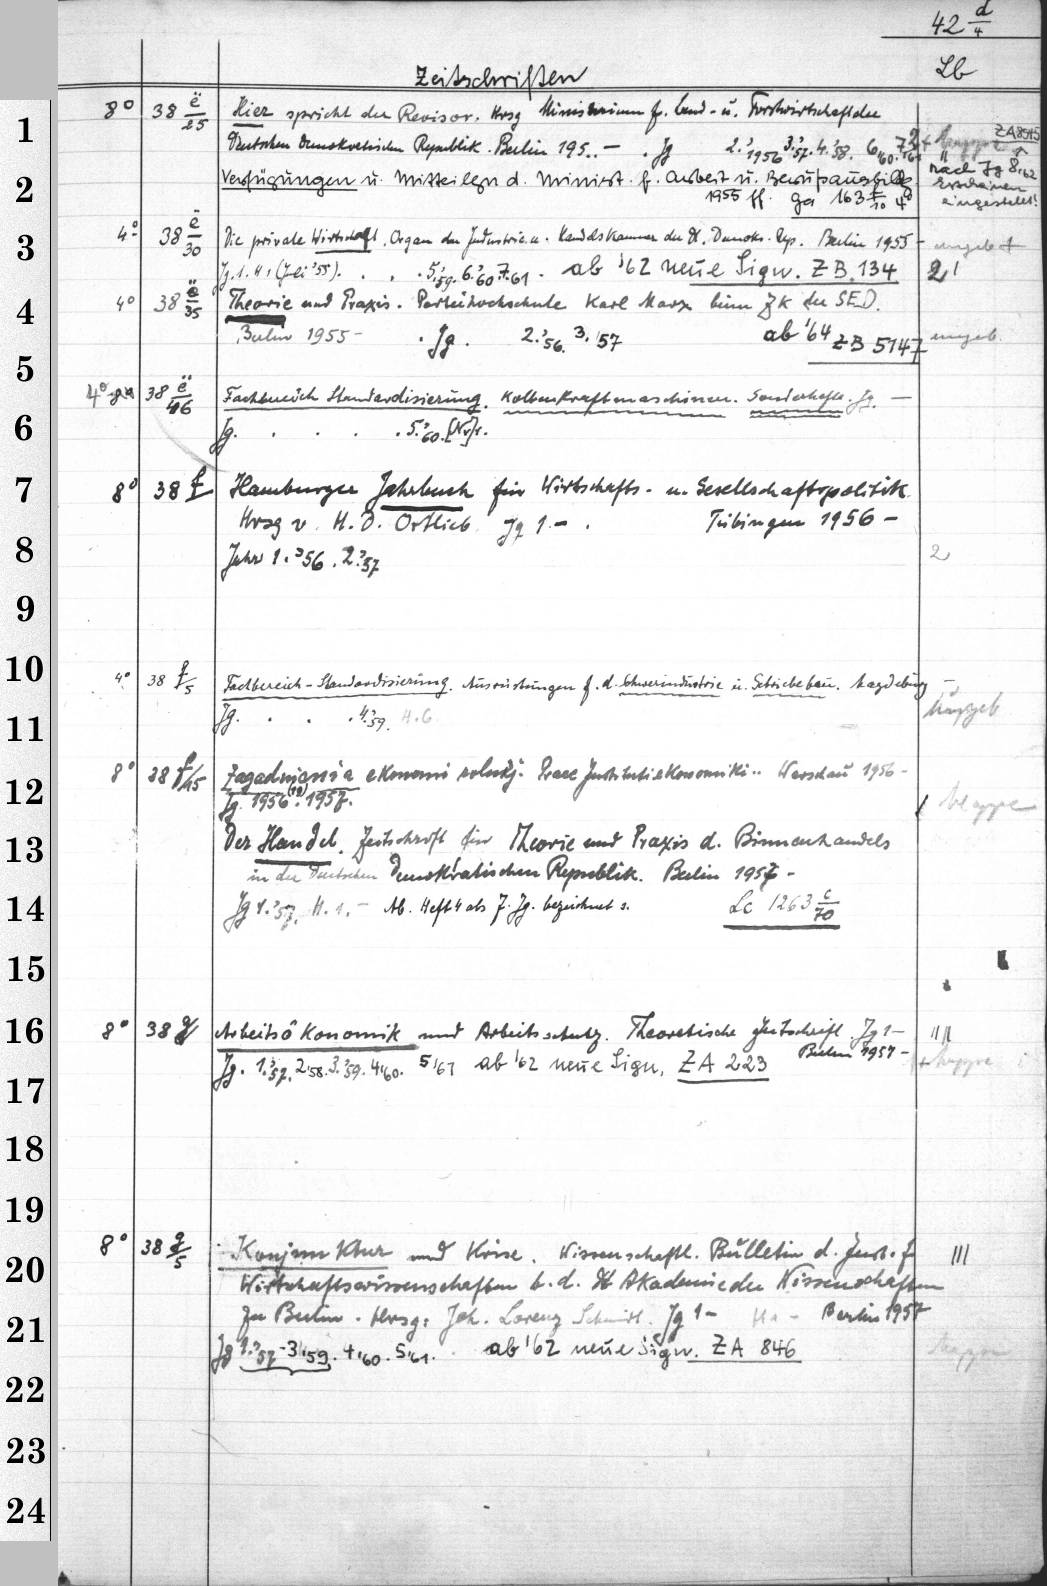 42 d/4
Zeitschriften Lb
1
8° 38 ë/25 Hier spricht der Revisor. Hrsg Ministerium f. Land- u. Forstwirtschaft der
Deutschen Demokratischen Republik. Berlin 195..- . Jg 2.'1956 3.'57. 4.'58. 6'60. 7'61 ZA 8515
2
Verfügungen u. Mitteilgn d. Minist. f. Arbeit u. Berufsausbildg nach Jg 8,'62 Erscheinen eingestellt!
1955 ff. Ga 163 f/10 4°
3
4° 38 ë/30 Die private Wirtschaft. Organ der Industrie u. Handelskammer der Dt. Demokr. Rep. Berlin 1955- ungeb +
Jg. 1. H. 1 (Juli '55). . . . 5.'59. 6.'60 7.'61. ab '62 neue Sign. ZB 134 2!
4
4° 38 ë/35 Theorie und Praxis. Parteihochschule Karl Marx beim ZK der SED.
Berlin 1955- . Jg. 2.'56. 3.'57 ab '64 ZB 5147 ungeb.
5
4° 38 ë/46 Fachbereich Standardisierung. Kolbenkraftmaschinen. Sonderhefte. Jg. —
6
Jg. . . . . 5.'60. [Nr] 1.
7
8° 38 f Hamburger Jahrbuch für Wirtschafts- u. Gesellschaftspolitik
Hrsg v. H. D. Ortlieb Jg 1.- . Tübingen 1956 -
8
Jahr 1.'56 . 2.'57 2
9
10
4° 38 f/5 Fachbereich-Standardisierung. Ausrüstungen f. d. Schwerindustrie u. Getriebebau. Magdeburg —
Jg. . . . 4.'59. H. 6 ungeb
11
12
8° 38 f/15 Zagadnienia ekonomi rolnej. Prace Instituti ekonomiki.. Warschau 1956-
Jg. 1956. 1957. Mappe
13
Der Handel. Zeitschrift für Theorie und Praxis d. Binnenhandels
in der Deutschen Demokratischen Republik. Berlin 1957 -
14
Jg 1.'57. H. 1.- Ab. Heft 4 als 7. Jg. bezeichnet s. Lc 1263 c/70
15
16
8° 38 g Arbeitsökonomik und Arbeitsschutz. Theoretische Zeitschrift. Jg 1-
Berlin 1957-
Jg. 1.'57. 2.'58. 3.'59. 4'60. 5'61 ab '62 neue Sign. ZA 223 + Mappe
17
18
19
20
8° 38 g/5 Konjunktur und Krise. Wissenschaftl. Bulletin d. Inst. f
Wirtschaftswissenschaften b. d. Dt Akademie der Wissenschaften
21
zu Berlin. Hrsg: Joh. Lorenz Schmidt. Jg 1- H 1 - Berlin 1957
Jg 1.'57 - 3'59. 4'60. 5'61. ab '62 neue Sign. ZA 846 Mappe
22
23
24